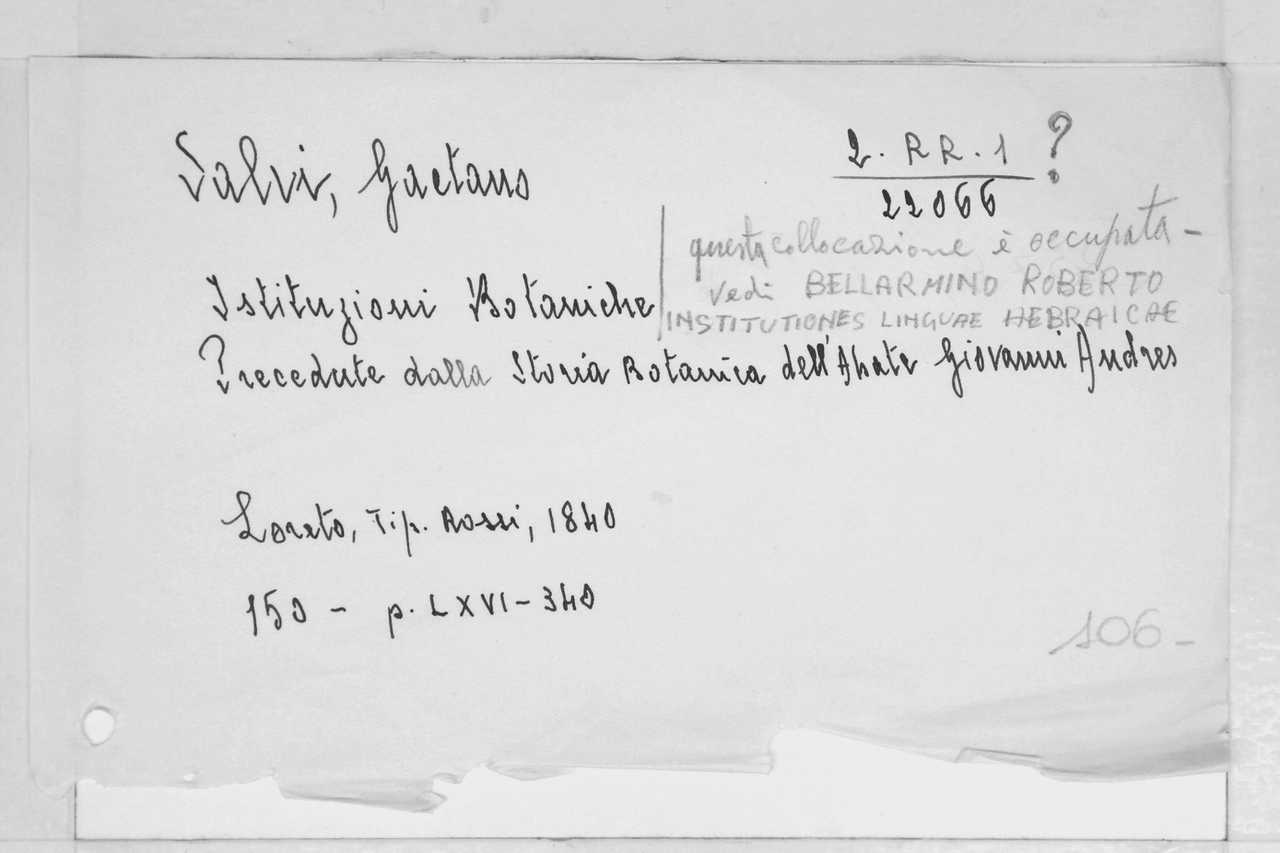 Salvi, Gaetano
2. RR. 1 ?
22066
questa collocazione è occupata -
vedi BELLARMINO ROBERTO
INSTITUTIONES LINGUAE HEBRAICAE
Istituzioni Botaniche
Precedute dalla Storia Botanica dell'Abate Giovanni Andres
Loreto, Tip. Rossi, 1840
150 - p. LXVI-340
106-